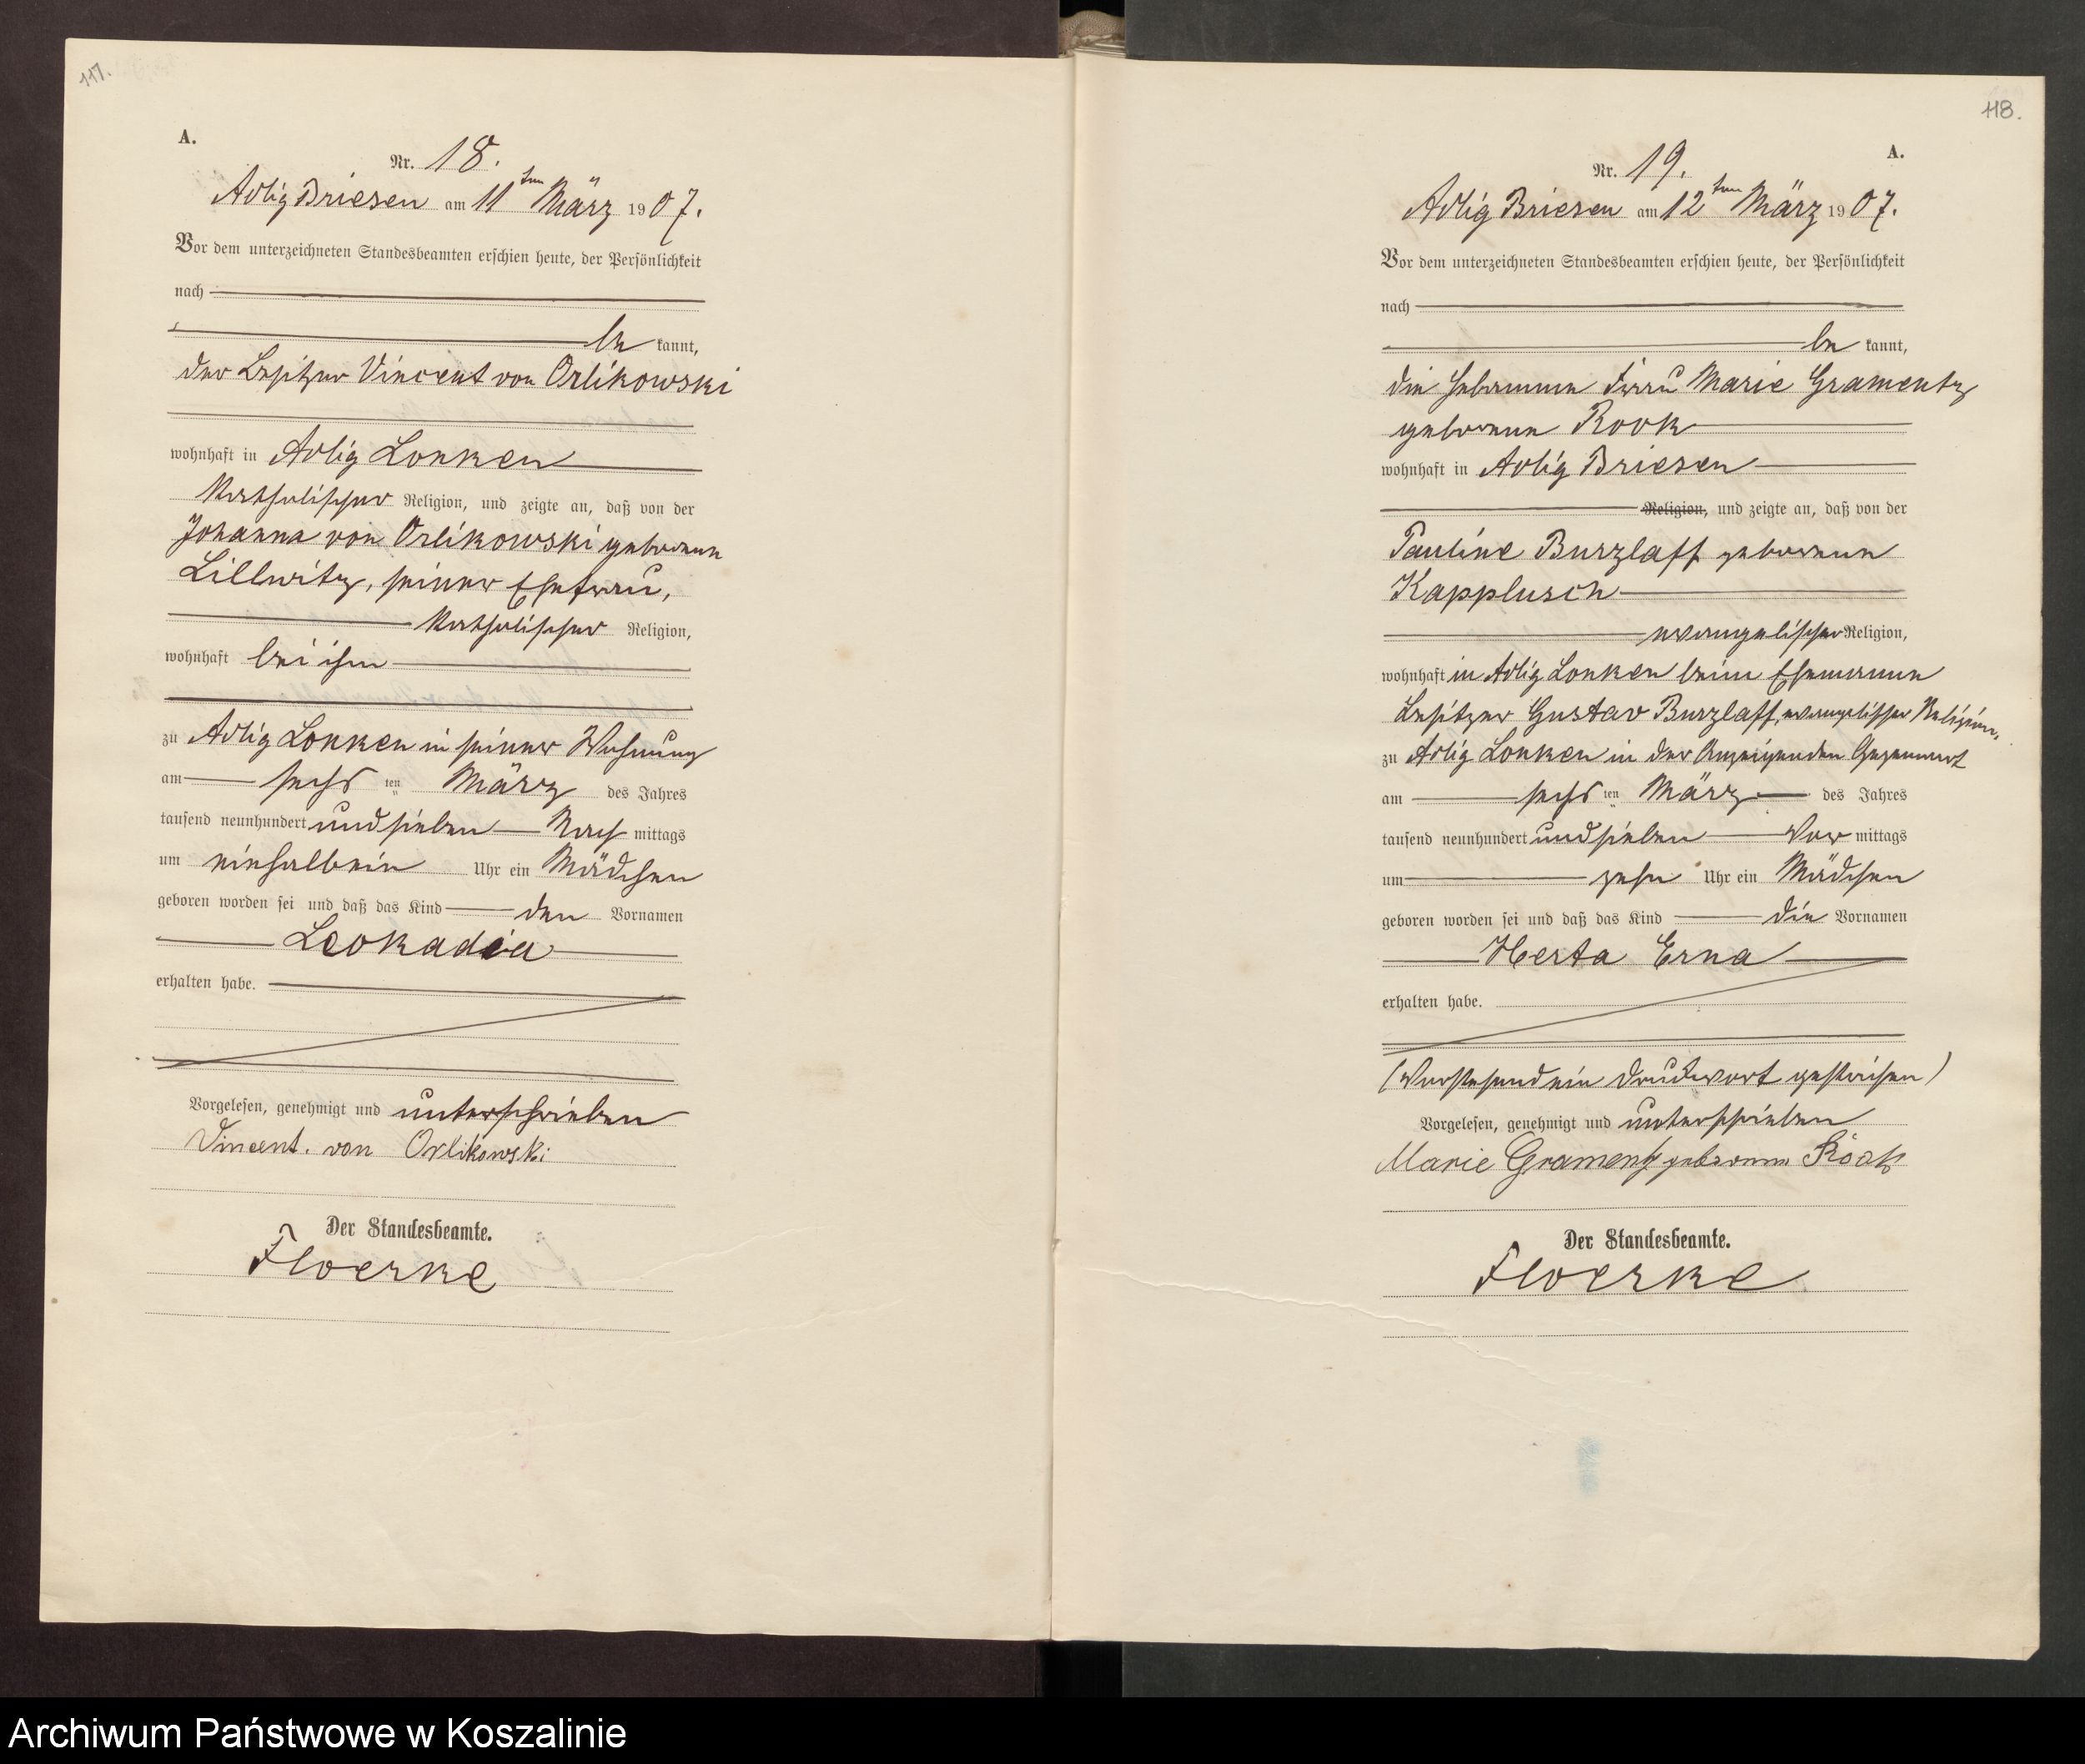 117.
A.
Nr. 18.
Adlig Briesen am 11ten März 1907.
Vor dem unterzeichneten Standesbeamten erschien heute, der Persönlichkeit
nach
be kannt,
der Besitzer Vincent von Orlikowski
wohnhaft in Adlig Lonken
katholischer Religion, und zeigte an, daß von der
Johanna von Orlikowski geborenen
Lillwitz, seiner Ehefrau,
katholischer Religion,
wohnhaft bei ihm
zu Adlig Lonken in seiner Wohnung
am sechs ten März des Jahres
tausend neunhundert und sieben Nach mittags
um einhalb ein Uhr ein Mädchen
geboren worden sei und daß das Kind den Vornamen
Leokadia
erhalten habe.
Vorgelesen, genehmigt und unterschrieben
Vincent. von Orlikowski
Der Standesbeamte.
Floerke
118.
A.
Nr. 19.
Adlig Briesen am 12ten März 1907.
Vor dem unterzeichneten Standesbeamten erschien heute, der Persönlichkeit
nach
be kannt,
die Hebamme Frau Marie Gramentz
geborene Rook
wohnhaft in Adlig Briesen
Religion, und zeigte an, daß von der
Pauline Burzlaff geborenen
Kapplusch
evangelischer Religion,
wohnhaft in Adlig Lonken beim Ehemanne
Besitzer Gustav Burzlaff, evangelischer Religion,
zu Adlig Lonken in der Anzeigenden Gegenwart
am sechs ten März des Jahres
tausend neunhundert und sieben Vor mittags
um zehn Uhr ein Mädchen
geboren worden sei und daß das Kind die Vornamen
Herta Erna
erhalten habe.
(Vorstehend ein Druckwort gestrichen)
Vorgelesen, genehmigt und unterschrieben
Marie Gramentz geborene Rook
Der Standesbeamte.
Floerke
Archiwum Państwowe w Koszalinie